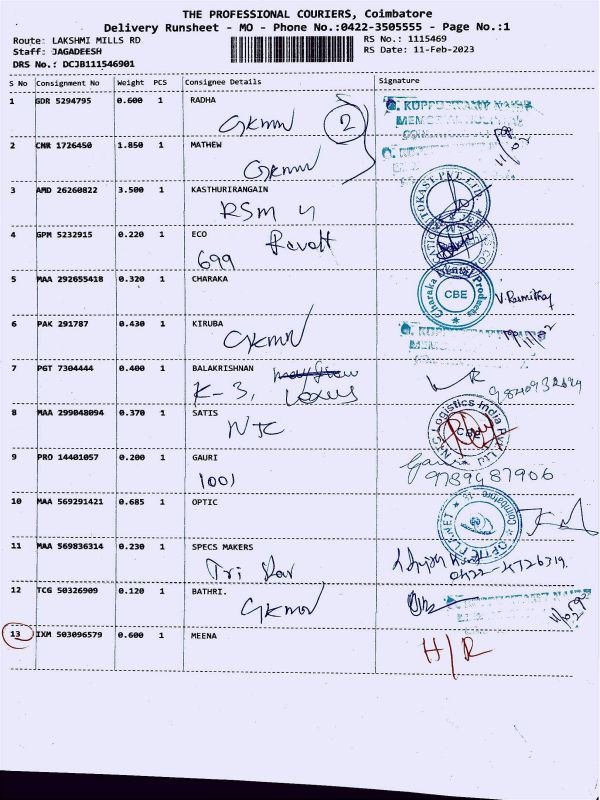 THE PROFESSIONAL COURIERS, Coimbatore
Delivery Runsheet - MO - Phone No.:0422-3505555 - Page No.:1
Route: LAKSHMI MILLS RD
RS No.: 1115469
Staff: JAGADEESH
RS Date: 11-Feb-2023
DRS No.: DCJB111546901
S No Consignment No Weight PCS Consignee Details Signature
1 GDR 5294795 0.600 1 RADHA
GKMH
2
2 CNR 1726450 1.850 1 MATHEW
GKMH
3 AMD 26260822 3.500 1 KASTHURIRANGAIN
RSM
4 GPM 5232915 0.220 1 ECO
699
5 MAA 292655418 0.320 1 CHARAKA
Charaka Dental Products
CBE
6 PAK 291787 0.430 1 KIRUBA
GKMH
7 PGT 7304444 0.400 1 BALAKRISHNAN
K-3, Lexus
8 MAA 299048094 0.370 1 SATIS
NJC
Logistics India
9 PRO 14401057 0.200 1 GAURI
1001
9789487906
10 MAA 569291421 0.685 1 OPTIC
OPTIC PLANET
Coimbatore
11 MAA 569836314 0.230 1 SPECS MAKERS
Tri Star
0422-4726319
12 TCG 50326909 0.120 1 BATHRI.
GKMH
13 IXM 503096579 0.600 1 MEENA
H/R